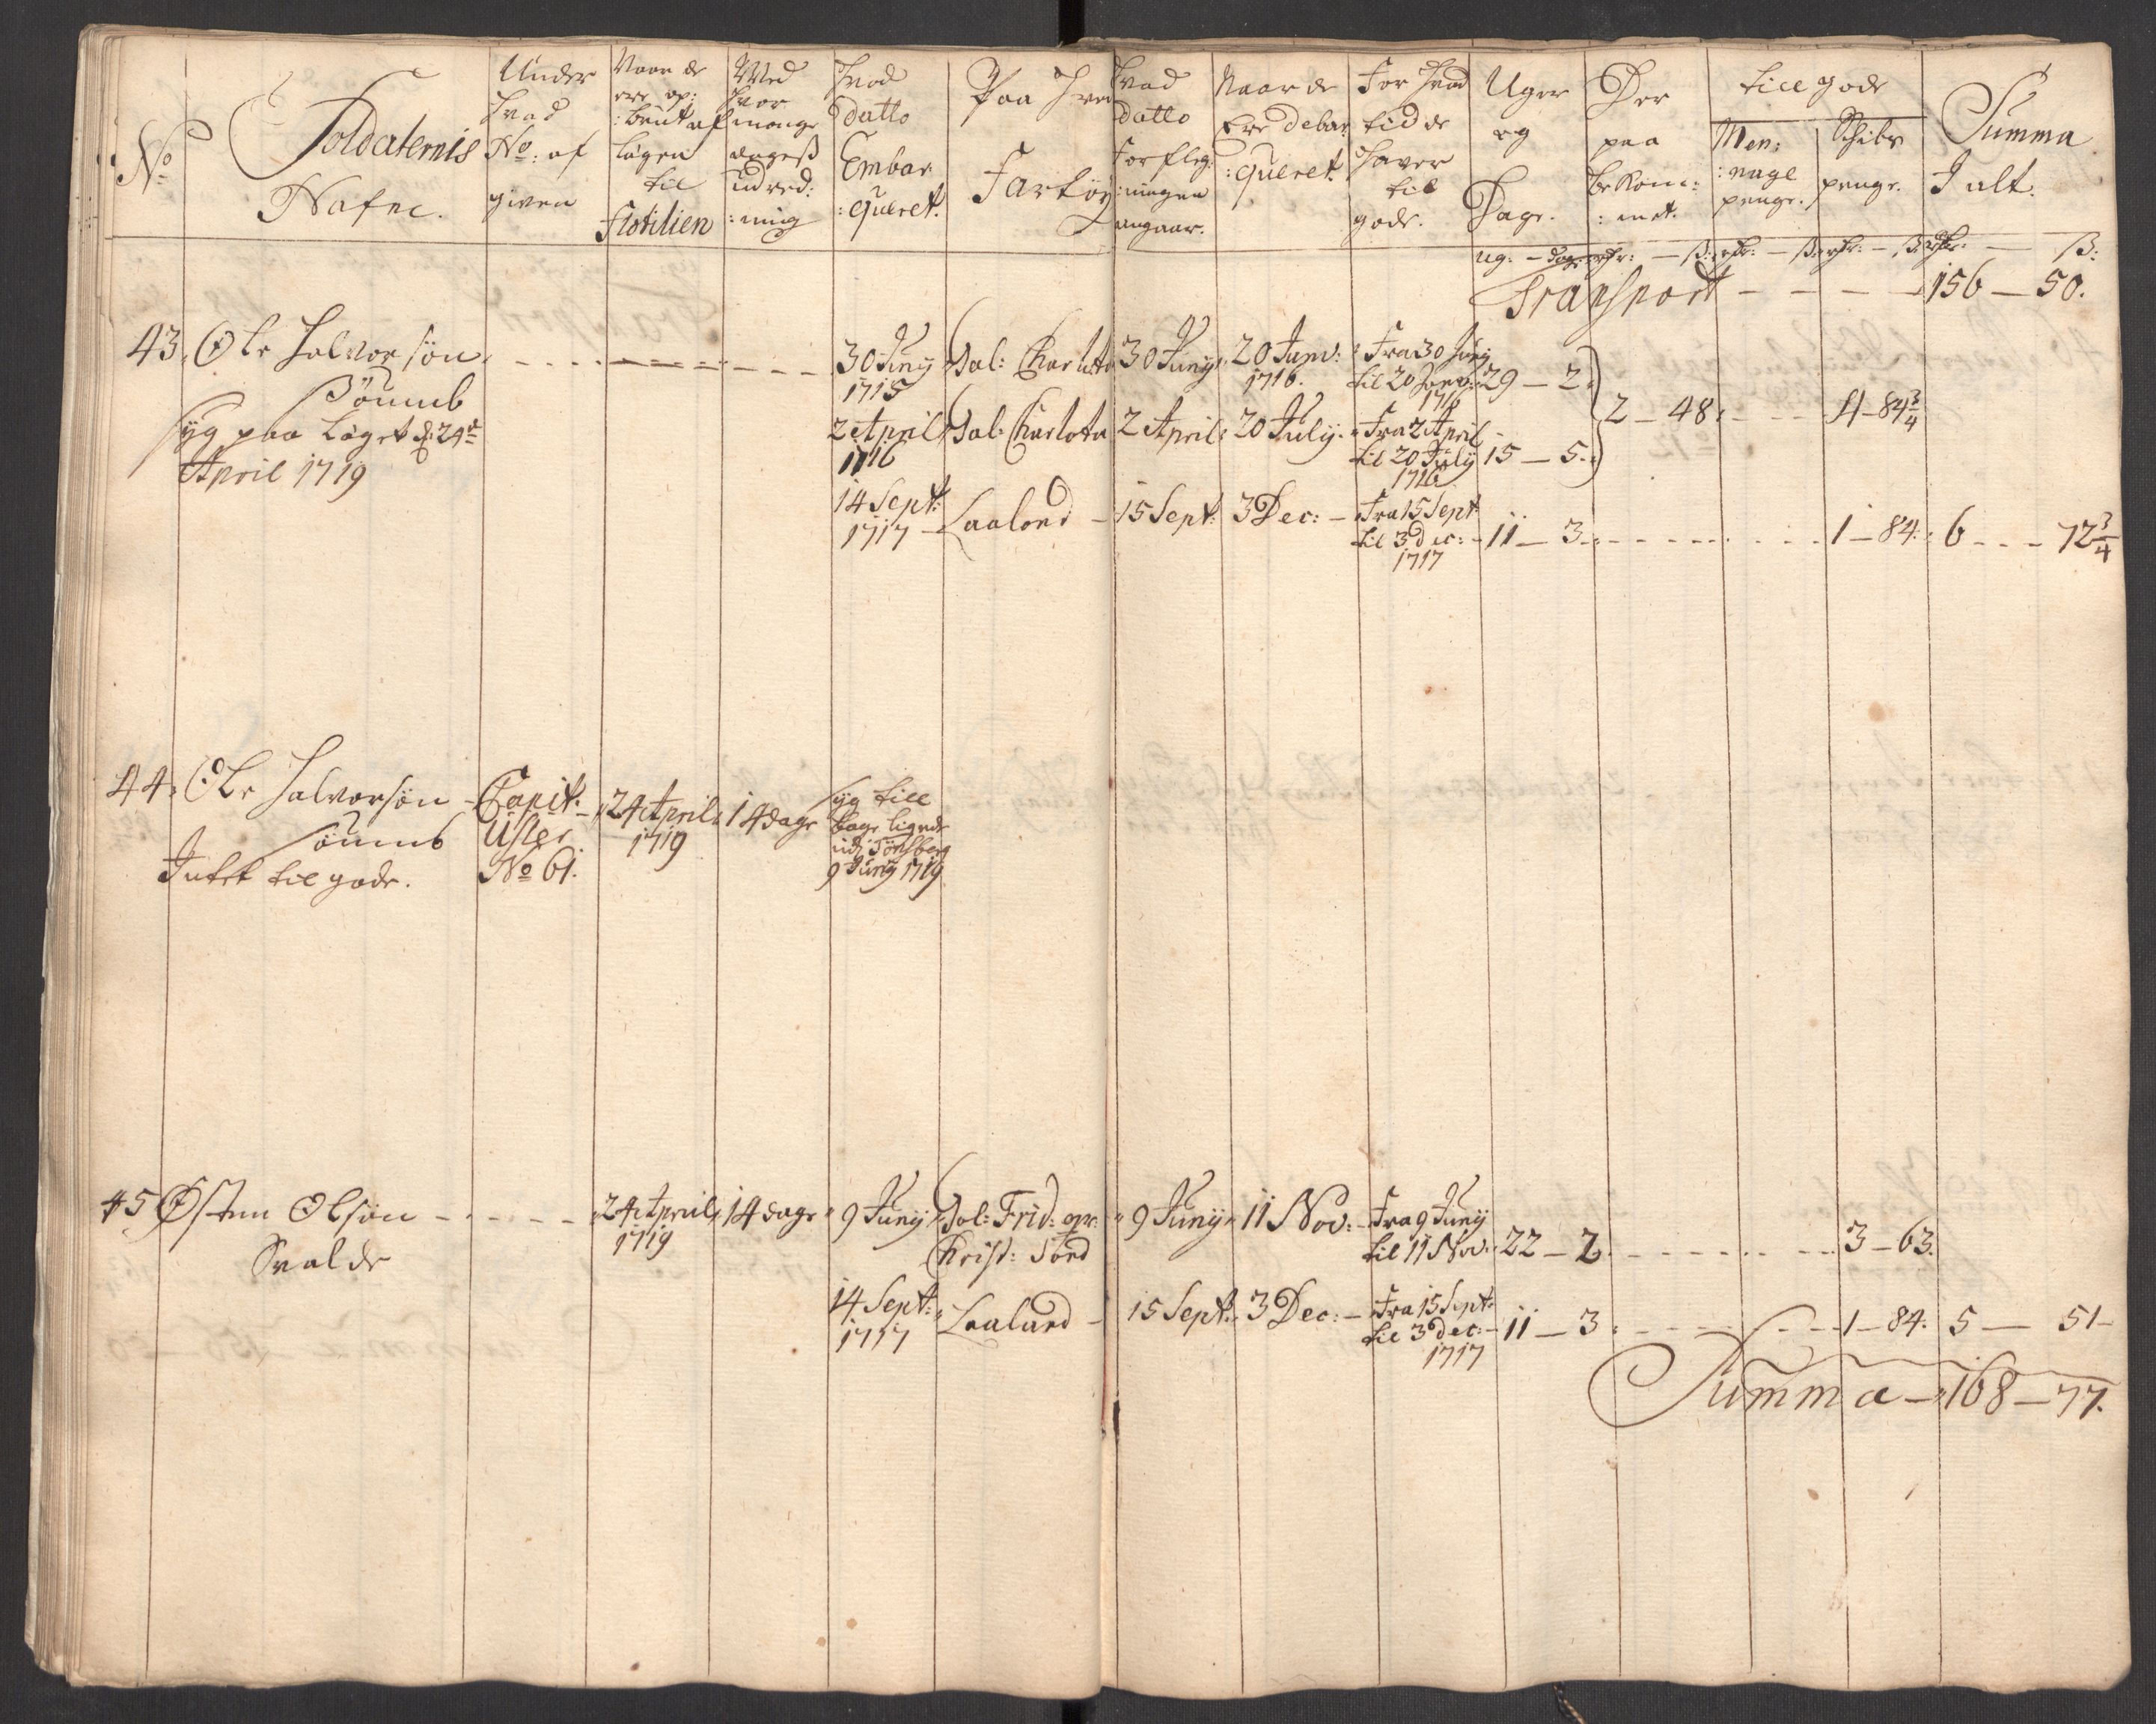 No
Soldaternis
Nafne.
Under
hvad
No: af
given
Naar de
ere op:
:brut af
lägren
til
Flotilien
Med
hvor
mange
dageß
udred:
:ning
Hvad
datto
Embar
:queret.
Paa Hvad
Fartöy
Hvad
datto
Forfleg:
:ningen
angaar.
Naar de
Ere debar
:queret.
For hvad
tid de
haver
til
gode.
Uger
og
Dage.
Der
paa
bekom:
:met.
till gode
Men:
:nage
penge.
Schibs
penge.
Summa
I alt.
ug: — dage
Transport — — — — 156 — 50.
43. Ole Halvorsøn
syg paa Läget d: 24de
April 1719
30 Junÿ
1715
Gal: Charlotta
30 Junÿ
20 Janv:
1716.
Fra 30 Junÿ
til 20 Janv:
1716
29 — 2
2 April
1716
Gal: Charlota
2 April
20 Julÿ.
Fra 2 April
til 20 Julÿ
1716
15 — 5
2 — 48.
4 — 84 3/4
14 Sept:
1717
Laaland — 15 Sept: 3 Dec: —
Fra 15 Sept
til 3 dec:
1717
11 — 3
1 — 84.
6 — — 72 3/4
44. Ole Halvorsøn
Intet til gode.
Capit.
No 61.
24 April
1719
14 dage
syg till
bage
udi Tönsberg
9 Junÿ 1719
45 Østen Olsøn
24 April
1719
14 dage
9 Junÿ
Gal: Frid: og
Christ:
9 Junÿ
11 Nov:
Fra 9 Junÿ
til 11 Nov:
22 — 2
3 — 63.
14 Sept:
1717
Laaland —
15 Sept:
3 Dec: —
Fra 15 Sept:
til 3 dec:
1717
11 — 3
1 — 84.
5 — 51
Summa — 168 — 77.